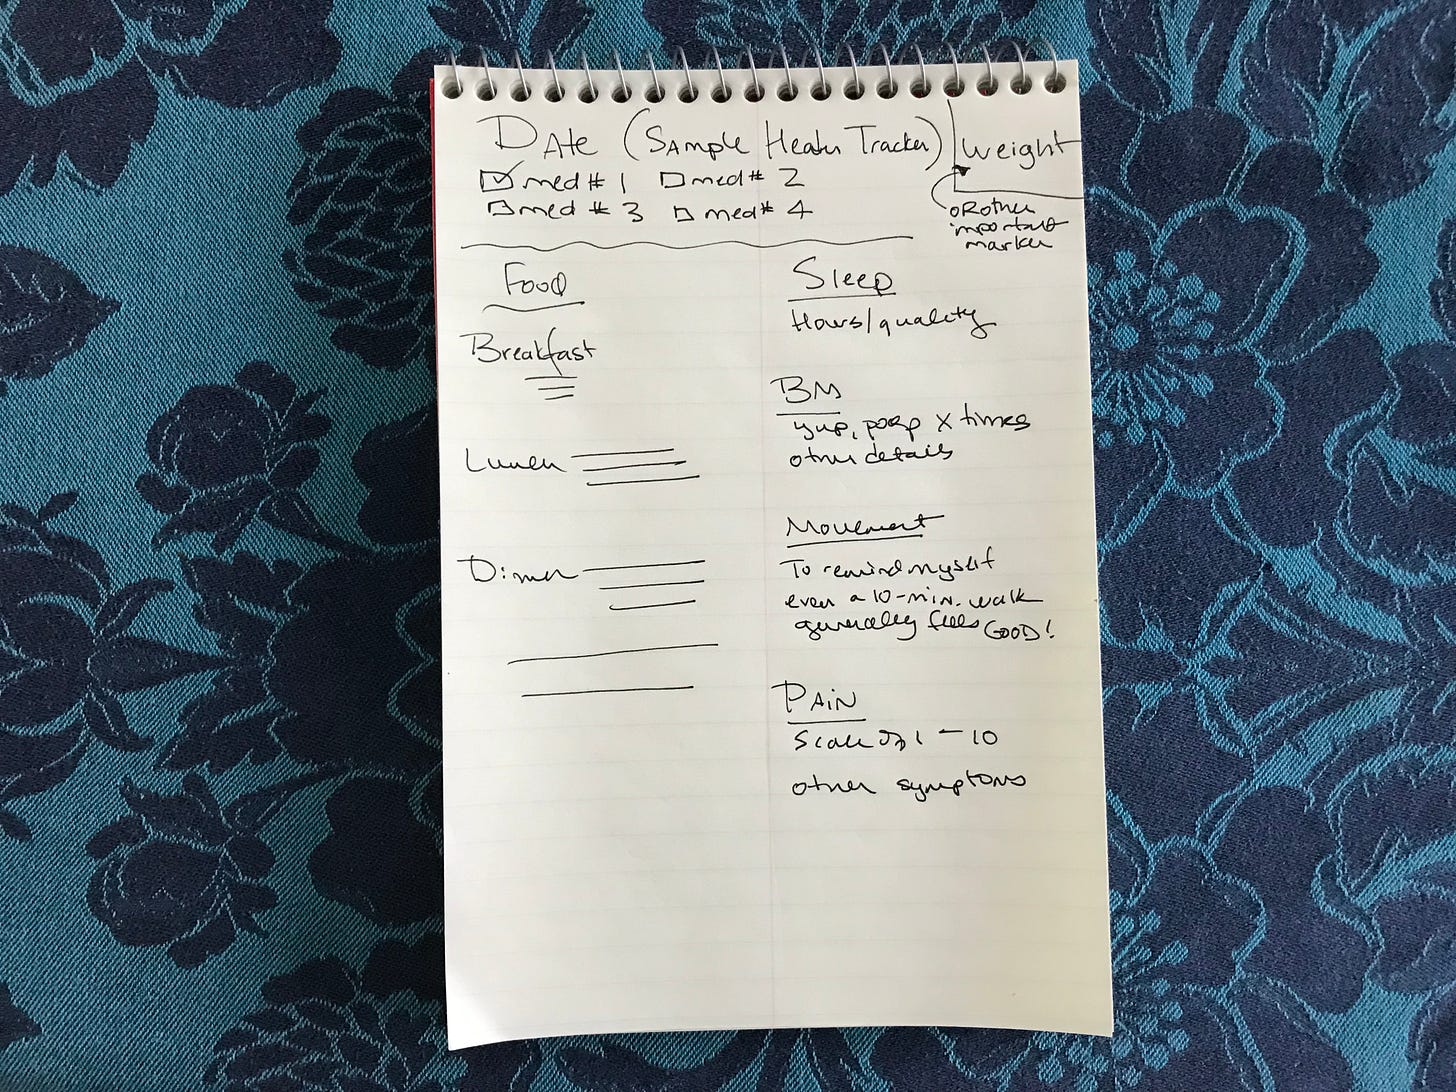 DATE (SAMPLE Health Tracker) Weight
med # 1 med # 2
med # 3 med # 4
OR other
important
marker
Food
Breakfast
Lunch
Dinner
Sleep
Hours/quality
BM
yup, poop X times
other details
Movement
To remind myself
even a 10-min. walk
generally feels GOOD!
PAiN
Scale of 1 - 10
other symptoms